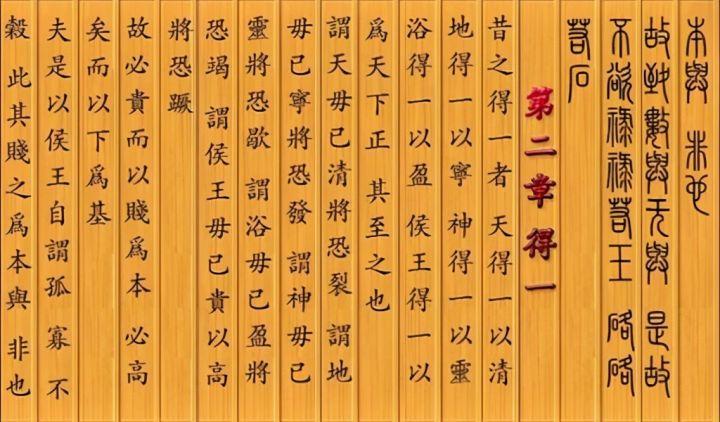 本與 非也
故致數與无與 是故
不欲祿祿若玉 硌硌
若石
第二章得一
昔之得一者 天得一以清
地得一以寧 神得一以靈
浴得一以盈 侯王得一以
爲天下正 其至之也
謂天毋已清將恐裂 謂地
毋已寧將恐發 謂神毋已
靈將恐歇 謂浴毋已盈將
恐竭 謂侯王毋已貴以高
將恐蹶
故必貴而以賤爲本 必高
矣而以下爲基
夫是以侯王自謂孤 寡 不
穀 此其賤之爲本與 非也